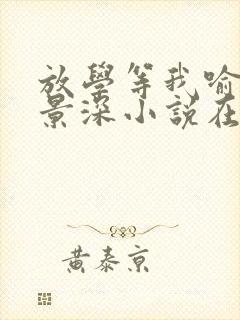 放學等我喻
景深小說在
黃泰京